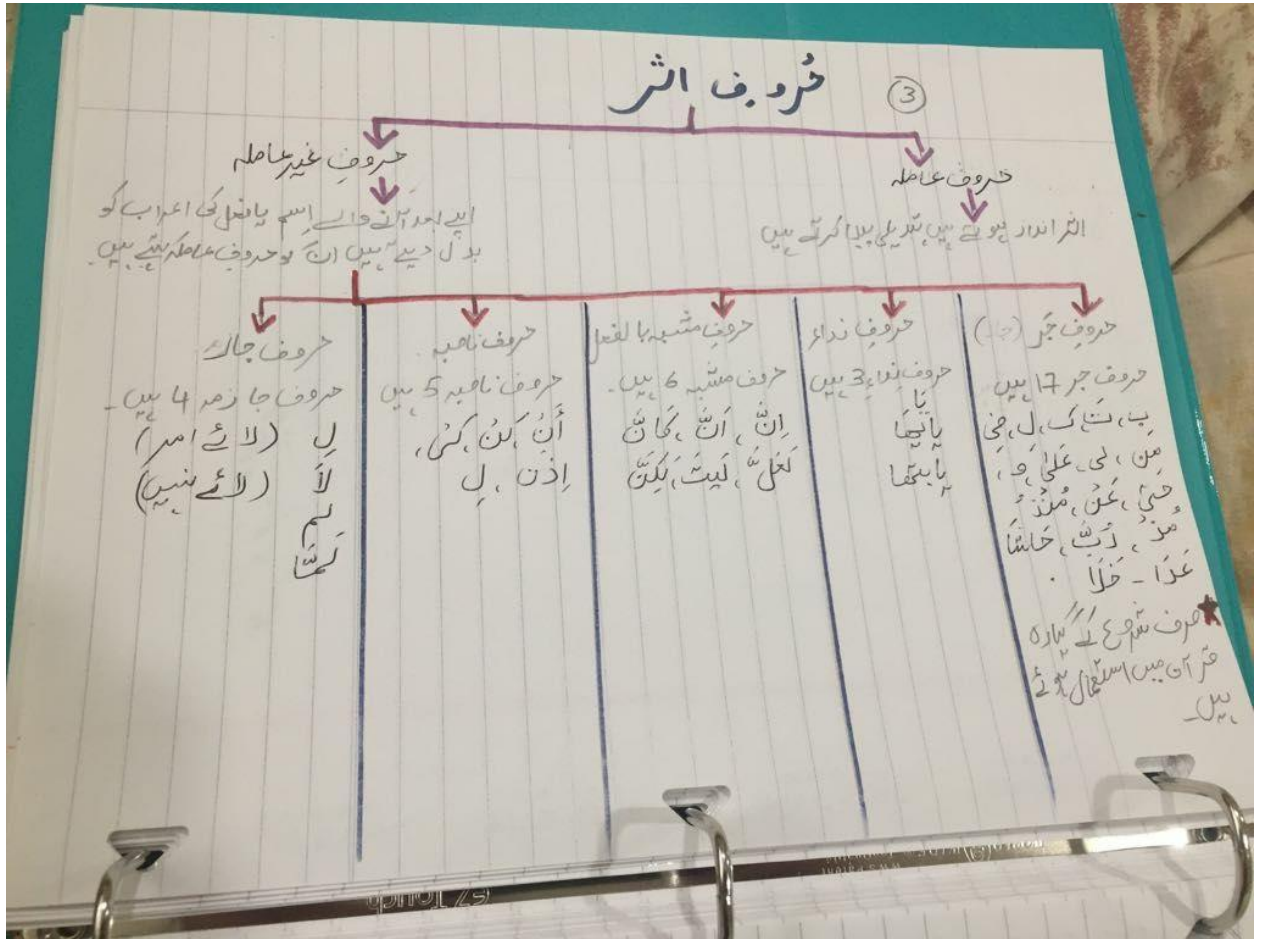 ③ حُروفِ اثر
حروف عاملہ
اثر انداز ہوتے ہیں تبدیلی پیدا کرتے ہیں
حروفِ غیر عاملہ
اپنے بعد آنے والے اِسم یا فعل کی اعراب کو
بدل دیتے ہیں ان کو حروفِ عاملہ کہتے ہیں۔
حروفِ جَر
حروف جر 17 ہیں
بِ، تَ، کَ، لِ، فِی
مِن، عَلٰی، وَ،
حتیٰ، عَنْ، مُنْذُ
مُذْ، رُبَّ، حَاشَا
عَدَا - خَلَا .
★ صرف شروع کے گیارہ
قرآن میں استعمال ہوئے
ہیں۔
حروفِ نداء
حروف نداء 3 ہیں
یَا
یایُّھَا
حروفِ مشبہ بالفعل
حروف مشبہ 6 ہیں۔
اِنَّ، اَنَّ، کَاَنَّ
لَعَلَّ، لَیتَ، لٰکِنَّ
حروف ناصبہ
حروف ناصبہ 5 ہیں
أَنْ، کَیْ،
اِذَن، لِ
حروف
حروف جازمہ 4 ہیں۔
لِ (لائے امر)
لَا
لم
لَمَّا
EZ Touch